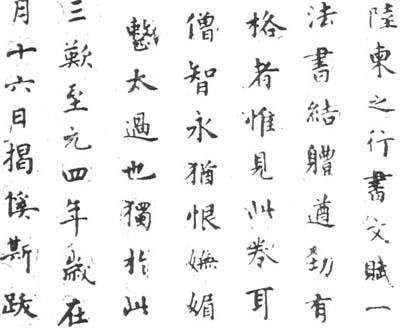 陸柬之行書文賦一
法書結體遒勁有
格者惟見此卷耳
僧智永猶恨嫵媚
太過也獨於此
三歎至元四年歲在
月十六日揭傒斯跋